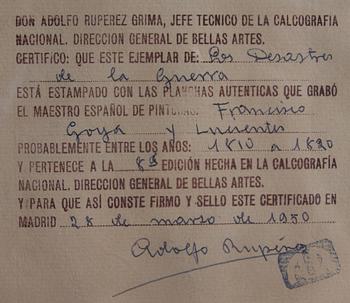 DON ADOLFO RUPEREZ GRIMA, JEFE TECNICO DE LA CALCOGRAFIA
NACIONAL. DIRECCION GENERAL DE BELLAS ARTES.
CERTIFICO: QUE ESTE EJEMPLAR DE: Los Desastres
de la Guerra
ESTÁ ESTAMPADO CON LAS PLANCHAS AUTENTICAS QUE GRABÓ
EL MAESTRO ESPAÑOL DE PINTURA. Francisco
Goya y Lucientes
PROBABLEMENTE ENTRE LOS AÑOS: 1810 a 1820
Y PERTENECE A LA 8ª EDICIÓN HECHA EN LA CALCOGRAFÍA
NACIONAL. DIRECCION GENERAL DE BELLAS ARTES.
Y PARA QUE ASÍ CONSTE FIRMO Y SELLO ESTE CERTIFICADO EN
MADRID 28 de marzo de 1950
Adolfo Ruperez